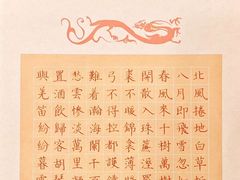 北風捲地白草折
八月即飛雪忽如
春風來千樹萬樹
開散入珠簾濕羅
裘不煖錦衾薄將
弓不得控都護鐵
難着瀚海闌干百
愁雲慘淡萬里凝
置酒飲歸客胡琴
與羌笛紛紛暮雪